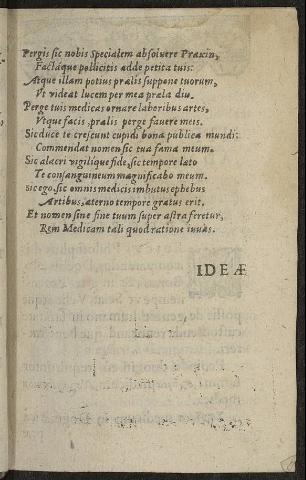 Pergis sic nobis Specialem absolvere Praxin,
Factáque pollicitis adde petita tuis.
Atque illam potius prælis suppone tuorum,
Vt videat lucem per mea præla diu.
Perge tuis medicas ornare laboribus artes,
Vtque facis, prælis perge favere meis.
Sic duce te crescunt cupidi bona publica mundi:
Commendat nomen sic tua fama meum.
Sic alacri vigilíque fide, sic tempore lato
Te consanguineum magnificabo meum.
Sic ego, sic omnis medicis imbutus ephebus
Artibus, æterno tempore gratus erit.
Et nomen sine fine tuum super astra feretur,
Rem Medicam tali quod ratione iuvas.
IDEÆ